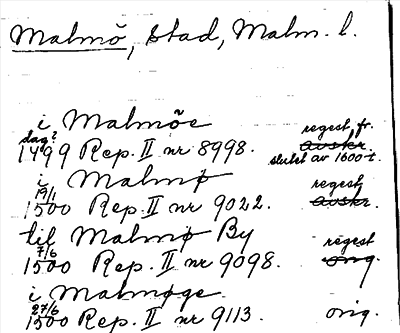 Malmö, Stad, Malm. l.
i Malmöe regest fr.
dag? avskr.
1499 Rep. II nr 8998. slutet av 1600-t.
i Malmø regest
19/1
1500 Rep. II nr 9022. avskr.
til Malmø By regest
7/6
1500 Rep. II nr 9098. orig.
i Malmøge.
27/6
1500 Rep. II nr 9113. orig.